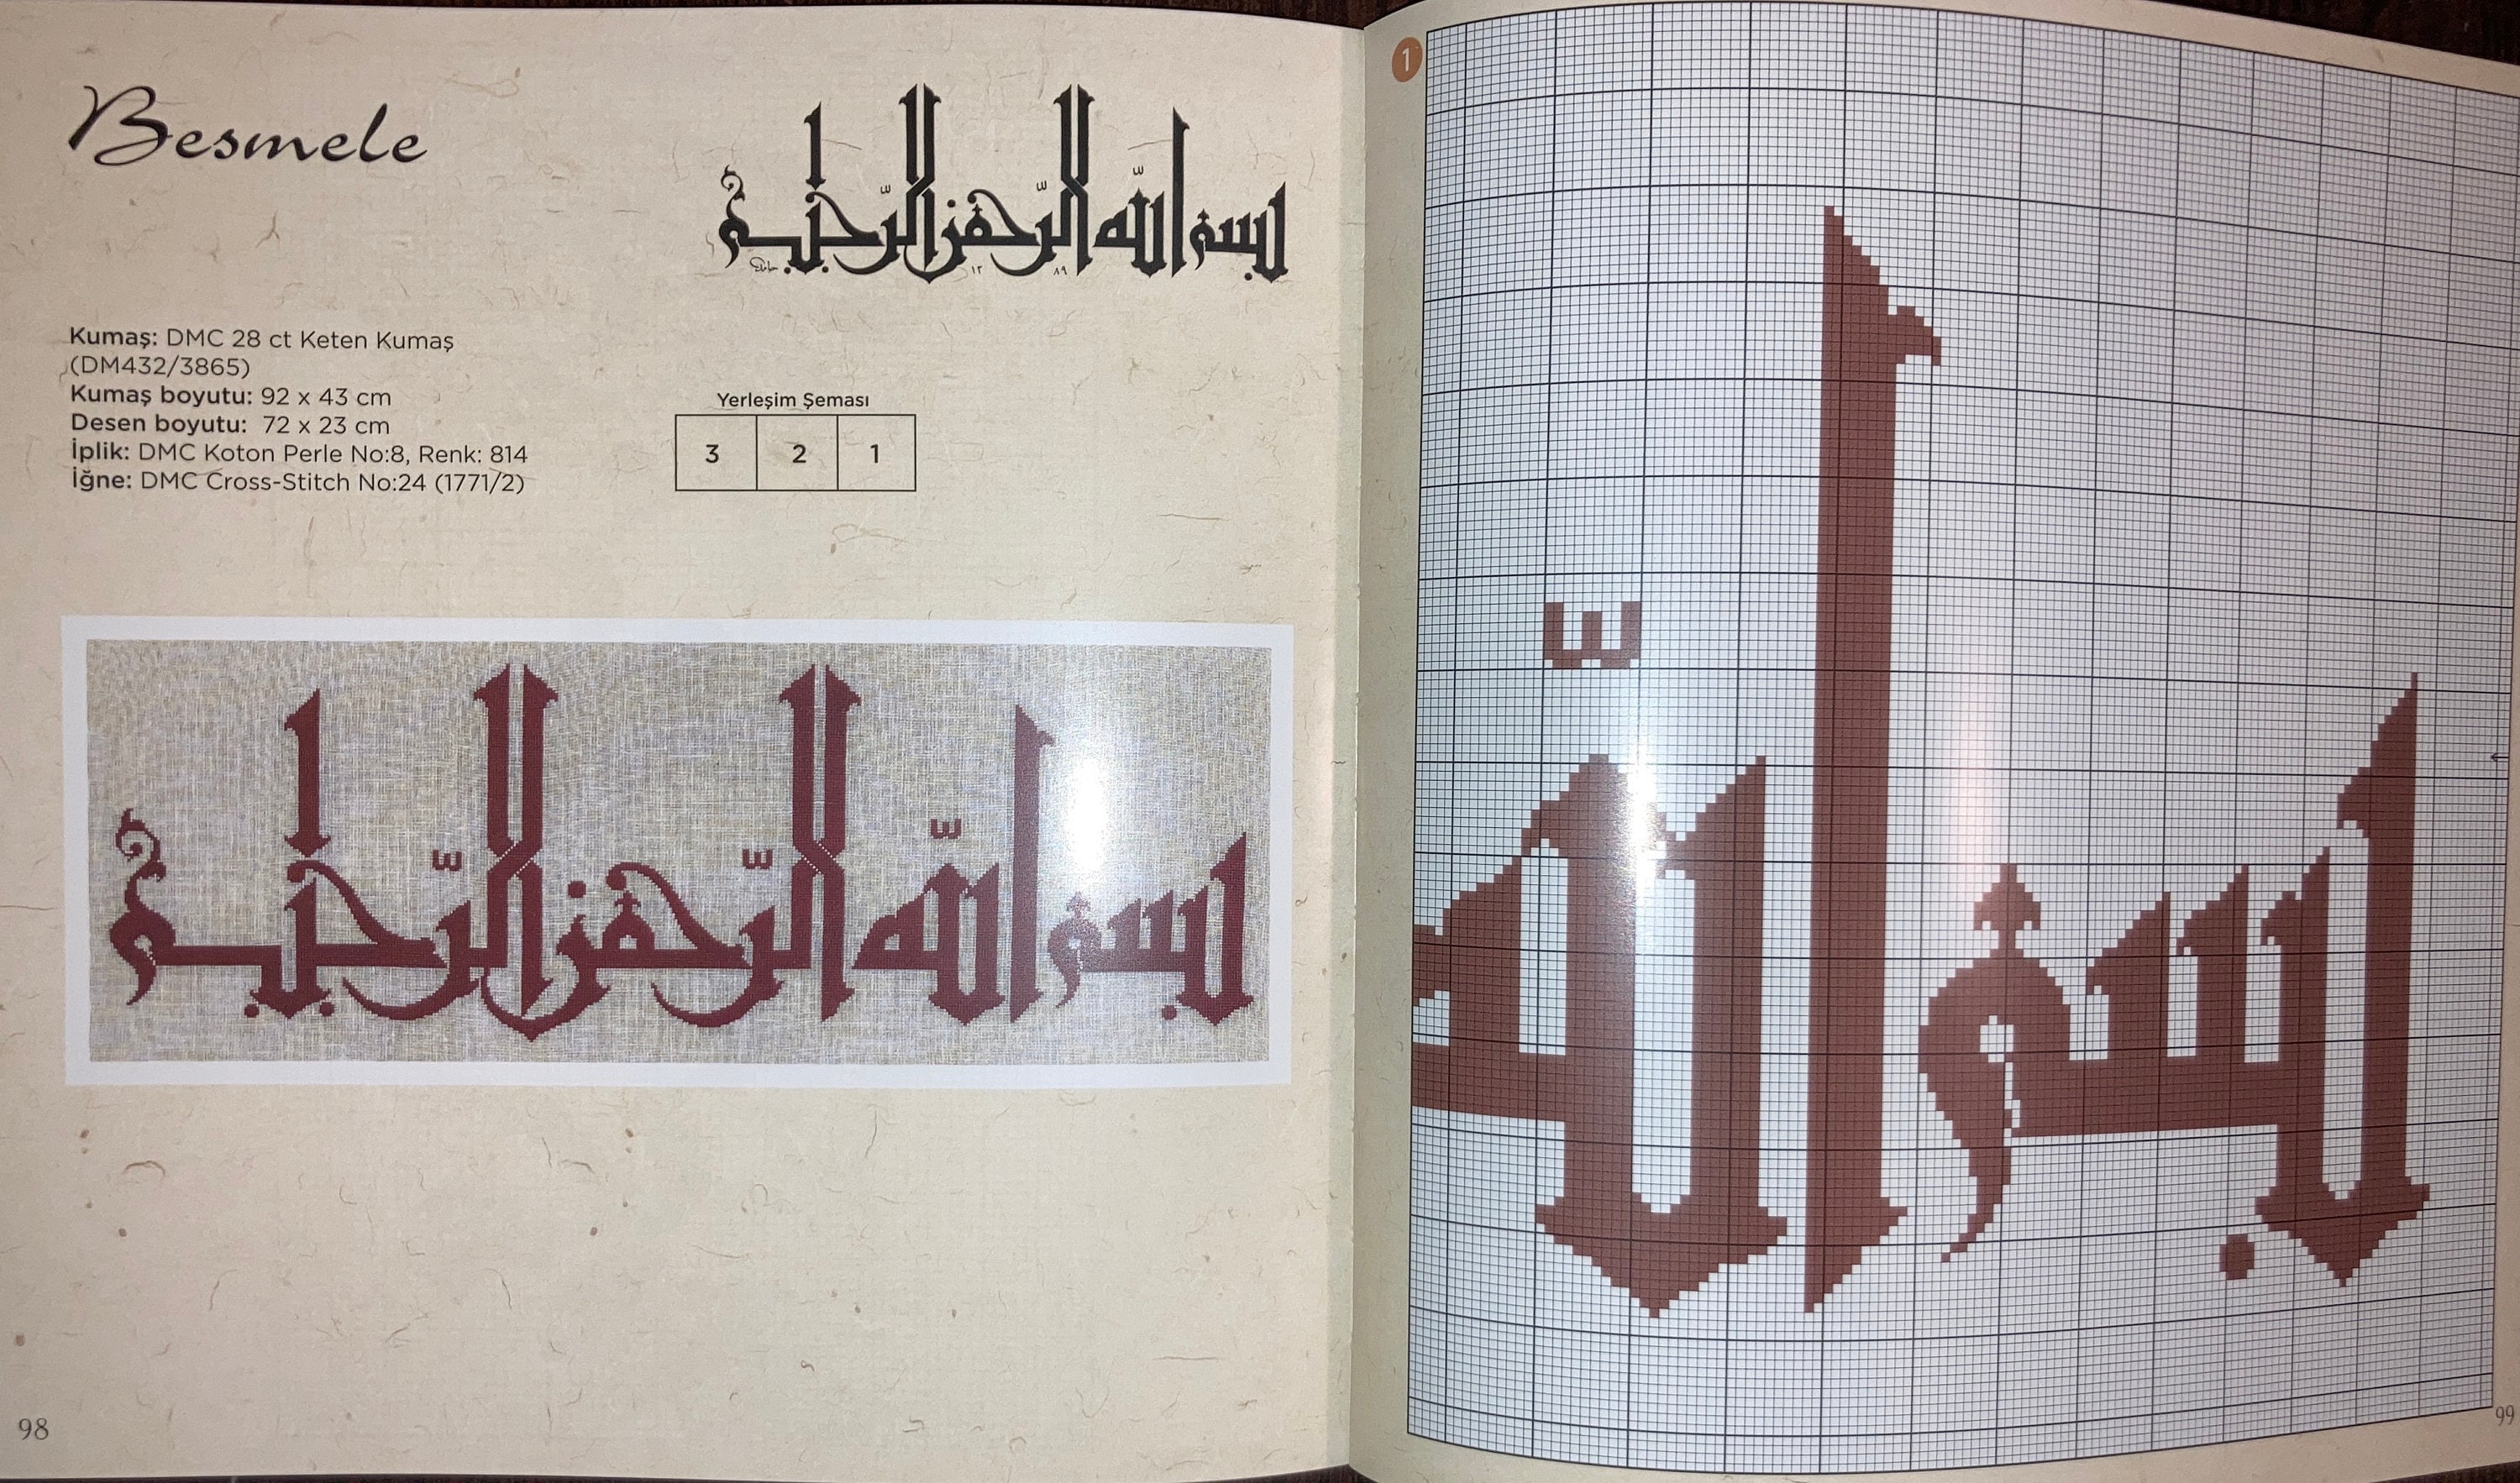 Besmele
بسم الله الرحمن الرحيم
١٢ ٨٩
Kumaş: DMC 28 ct Keten Kumaş
(DM432/3865)
Kumaş boyutu: 92 x 43 cm
Desen boyutu: 72 x 23 cm
İplik: DMC Koton Perle No:8, Renk: 814
İğne: DMC Cross-Stitch No:24 (1771/2)
Yerleşim Şeması
3 2 1
بسم الله الرحمن الرحيم
98
1
بسم الله
99